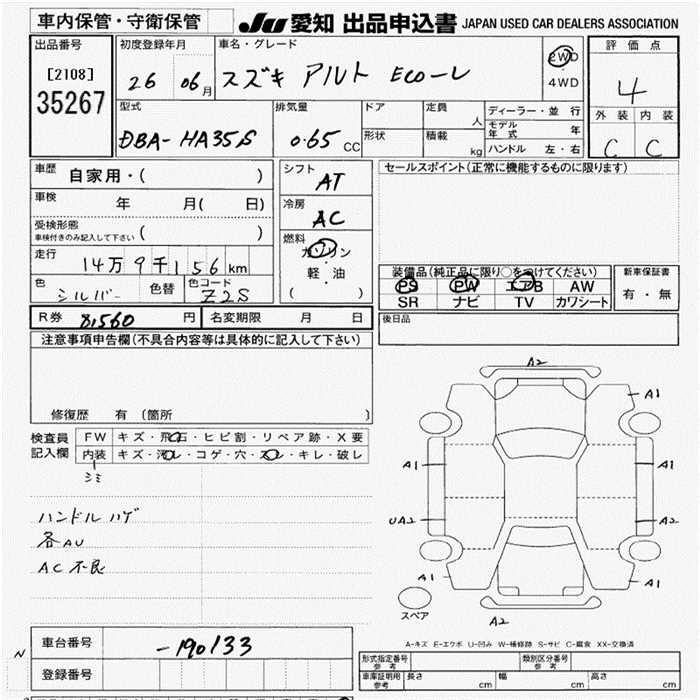 車内保管・守衛保管
JU 愛知 出品申込書 JAPAN USED CAR DEALERS ASSOCIATION
出品番号
[2108]
35267
初度登録年月
26 06月
車名・グレード
スズキ アルト ECO-L
2WD
4WD
評価点
4
外装 内装
C C
型式
DBA- HA35S
排気量
0.65 CC
ドア
形状
定員
人
積載
kg
ディーラー・並行
モデル年式 年
ハンドル 左・右
車歴 自家用・( )
車検 年 月( 日)
受検形態
車検付きのみ記入して下さい ( )
走行
14万9千156km
色
シルバー
色替
色コード
Z2S
シフト
AT
冷房
AC
燃料
ガソリン
軽・油
( )
セールスポイント(正常に機能するものに限ります)
装備品(純正品に限り○をつけてください)
PS PW エアB AW
SR ナビ TV カワシート
新車保証書
有・無
後日品
R券 8,560 円
名変期限 月 日
注意事項申告欄(不具合内容等は具体的に記入して下さい)
修復歴 有 〔箇所 〕
検査員
記入欄
FW キズ・飛石・ヒビ割・リペア跡・X要
内装 キズ・汚レ・コゲ・穴・スレ・キレ・破レ
シミ
ハンドル ハゲ
各AU
AC 不良
A2
A1
A1
A1
UA2
A2
A1
A1
スペア
A2
A-キズ E-エクボ U-凹み W-補修跡 S-サビ C-腐食 XX-交換済
車台番号
-190133
登録番号
N
形式指定番号
参考
類別区分番号
参考
車庫証明用
参考
長さ cm 幅 cm 高さ cm